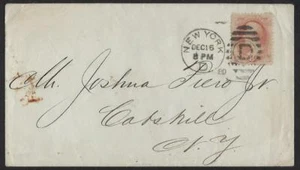 NEW YORK
DEC 16
8 PM
D
Mr. Joshua Fiero Jr
Catskill
N.Y